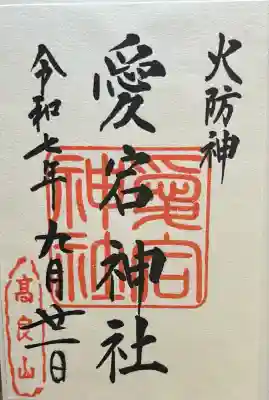 火防神
愛宕神社
令和七年九月廿一日
愛宕
神社
高良山